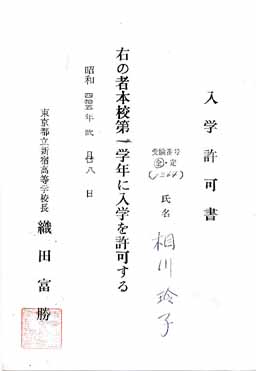 入学許可書
受検番号
全・定
氏名 相川玲子
右の者本校第一学年に入学を許可する
昭和四拾五年弐月廿八日
東京都立新宿高等学校長 織田富勝